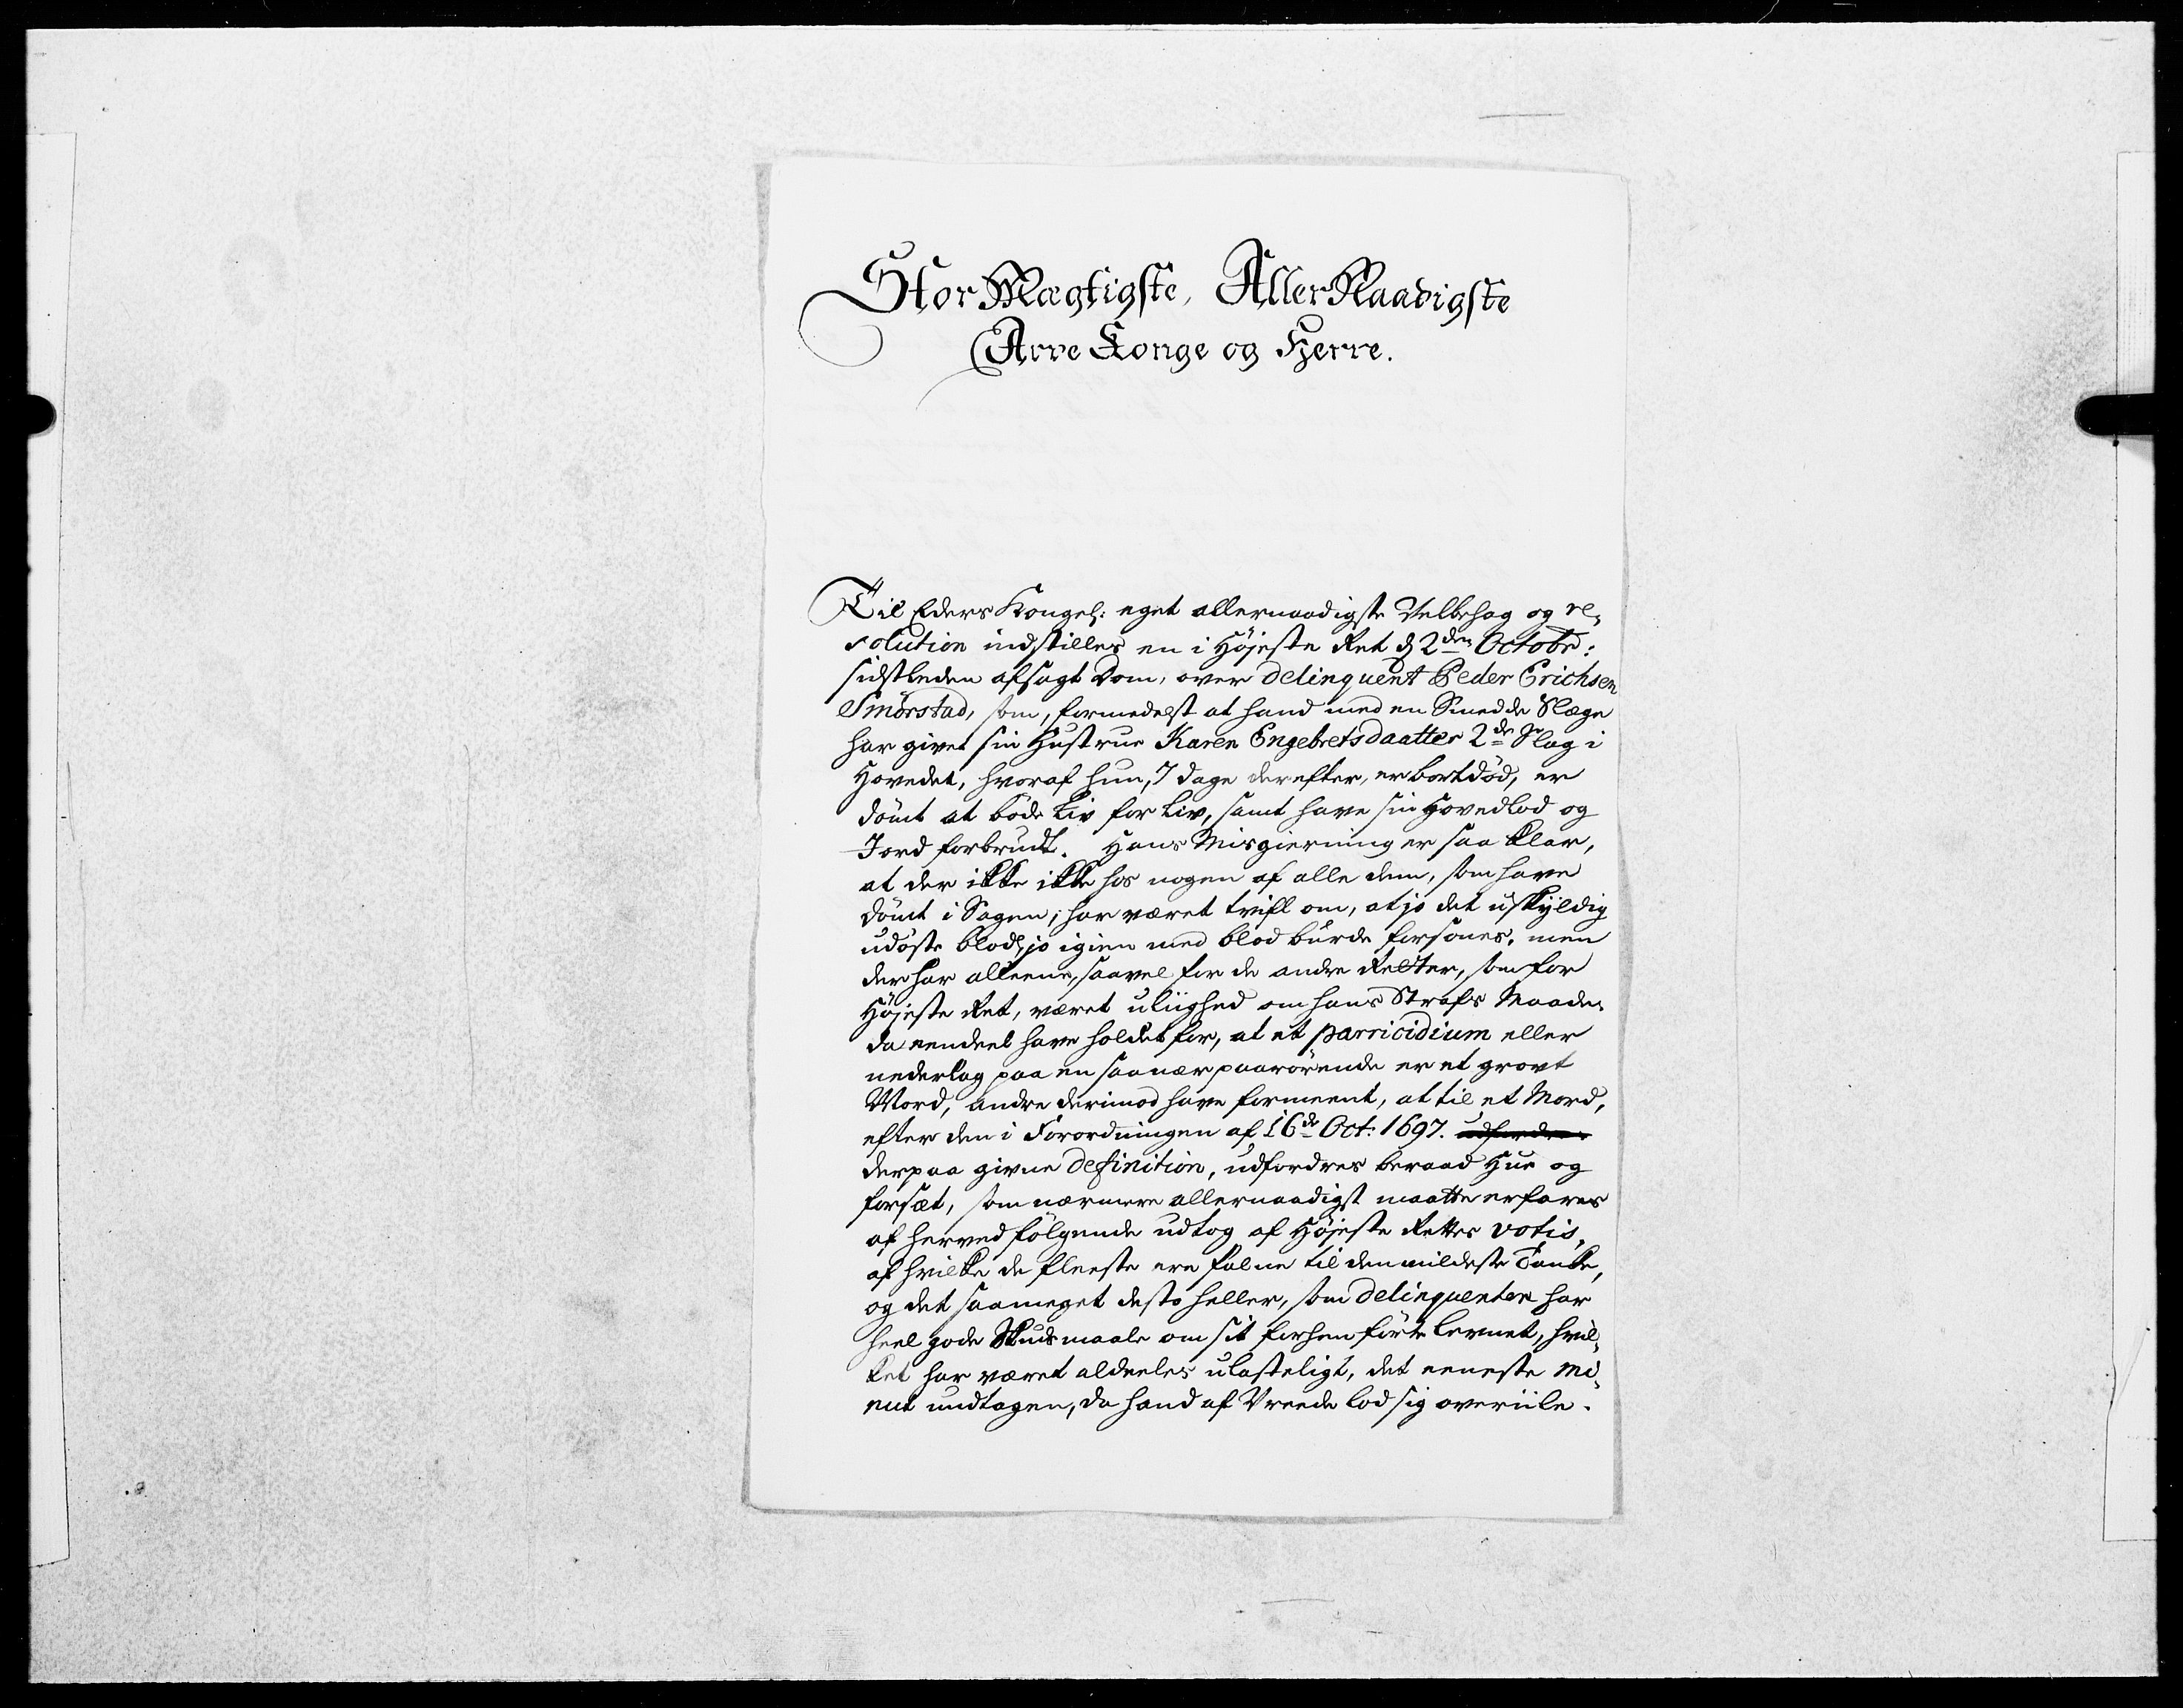 StorMægtigste, AllerNaadigste
Arve Konge og Herre.
Til Eders Kongel: eget allernaadigste Velbehag og re-
solution indstilles en i Høјeste Ret d 2den Octobr:
sidstleden afsagt Dom, over Delinquent Peder Erichsen
Smörstad, som, formedelst at hand med en Smedde Slæge
har givet sin Hustrue Karen Engebretsdaatter 2de Slag i
Hovedet, hvoraf hun, 7 dage derefter, er bortdöd, er
dömt at böde Liv for Liv, samt have sin Hovedlod og
Jord forbrudt. Hans Misgierning er saa klar,
at der ikke ikke hos nogen af alle dem, som have
dömt i Sagen, har været tvifl om, at jo det uskyldig
udöste blod, jo igien med blod burde forsones, men
der har alleene, saavel for de andre Retter, som for
Höjeste Ret, været uliighed om hans Strafs Maade,
da eendeel have holdet for, at et parricidium eller
nederlag paa en saa nær paarörende er et grovt
Mord, andre derimod have formeent, at til et Mord,
efter den i Forordningen af 16de Oct: 1697. udfordres
derpaa givne Definition, udfordres beraad Hue og
forsæt, som nærmere allernaadigst maatte erfares
af herved fölgende udtog af Höjeste Rettes votis,
af hvilke de fleeste ere falne til den mildeste Tanke,
og det saameget desto heller, som Delinquenten har
heel gode Skudsmaale om sit forhen förte levnet, hvil-
ket har været aldeeles ulasteligt, det eeneste mi-
nut undtagen, da hand af Vreede lod sig overiile.